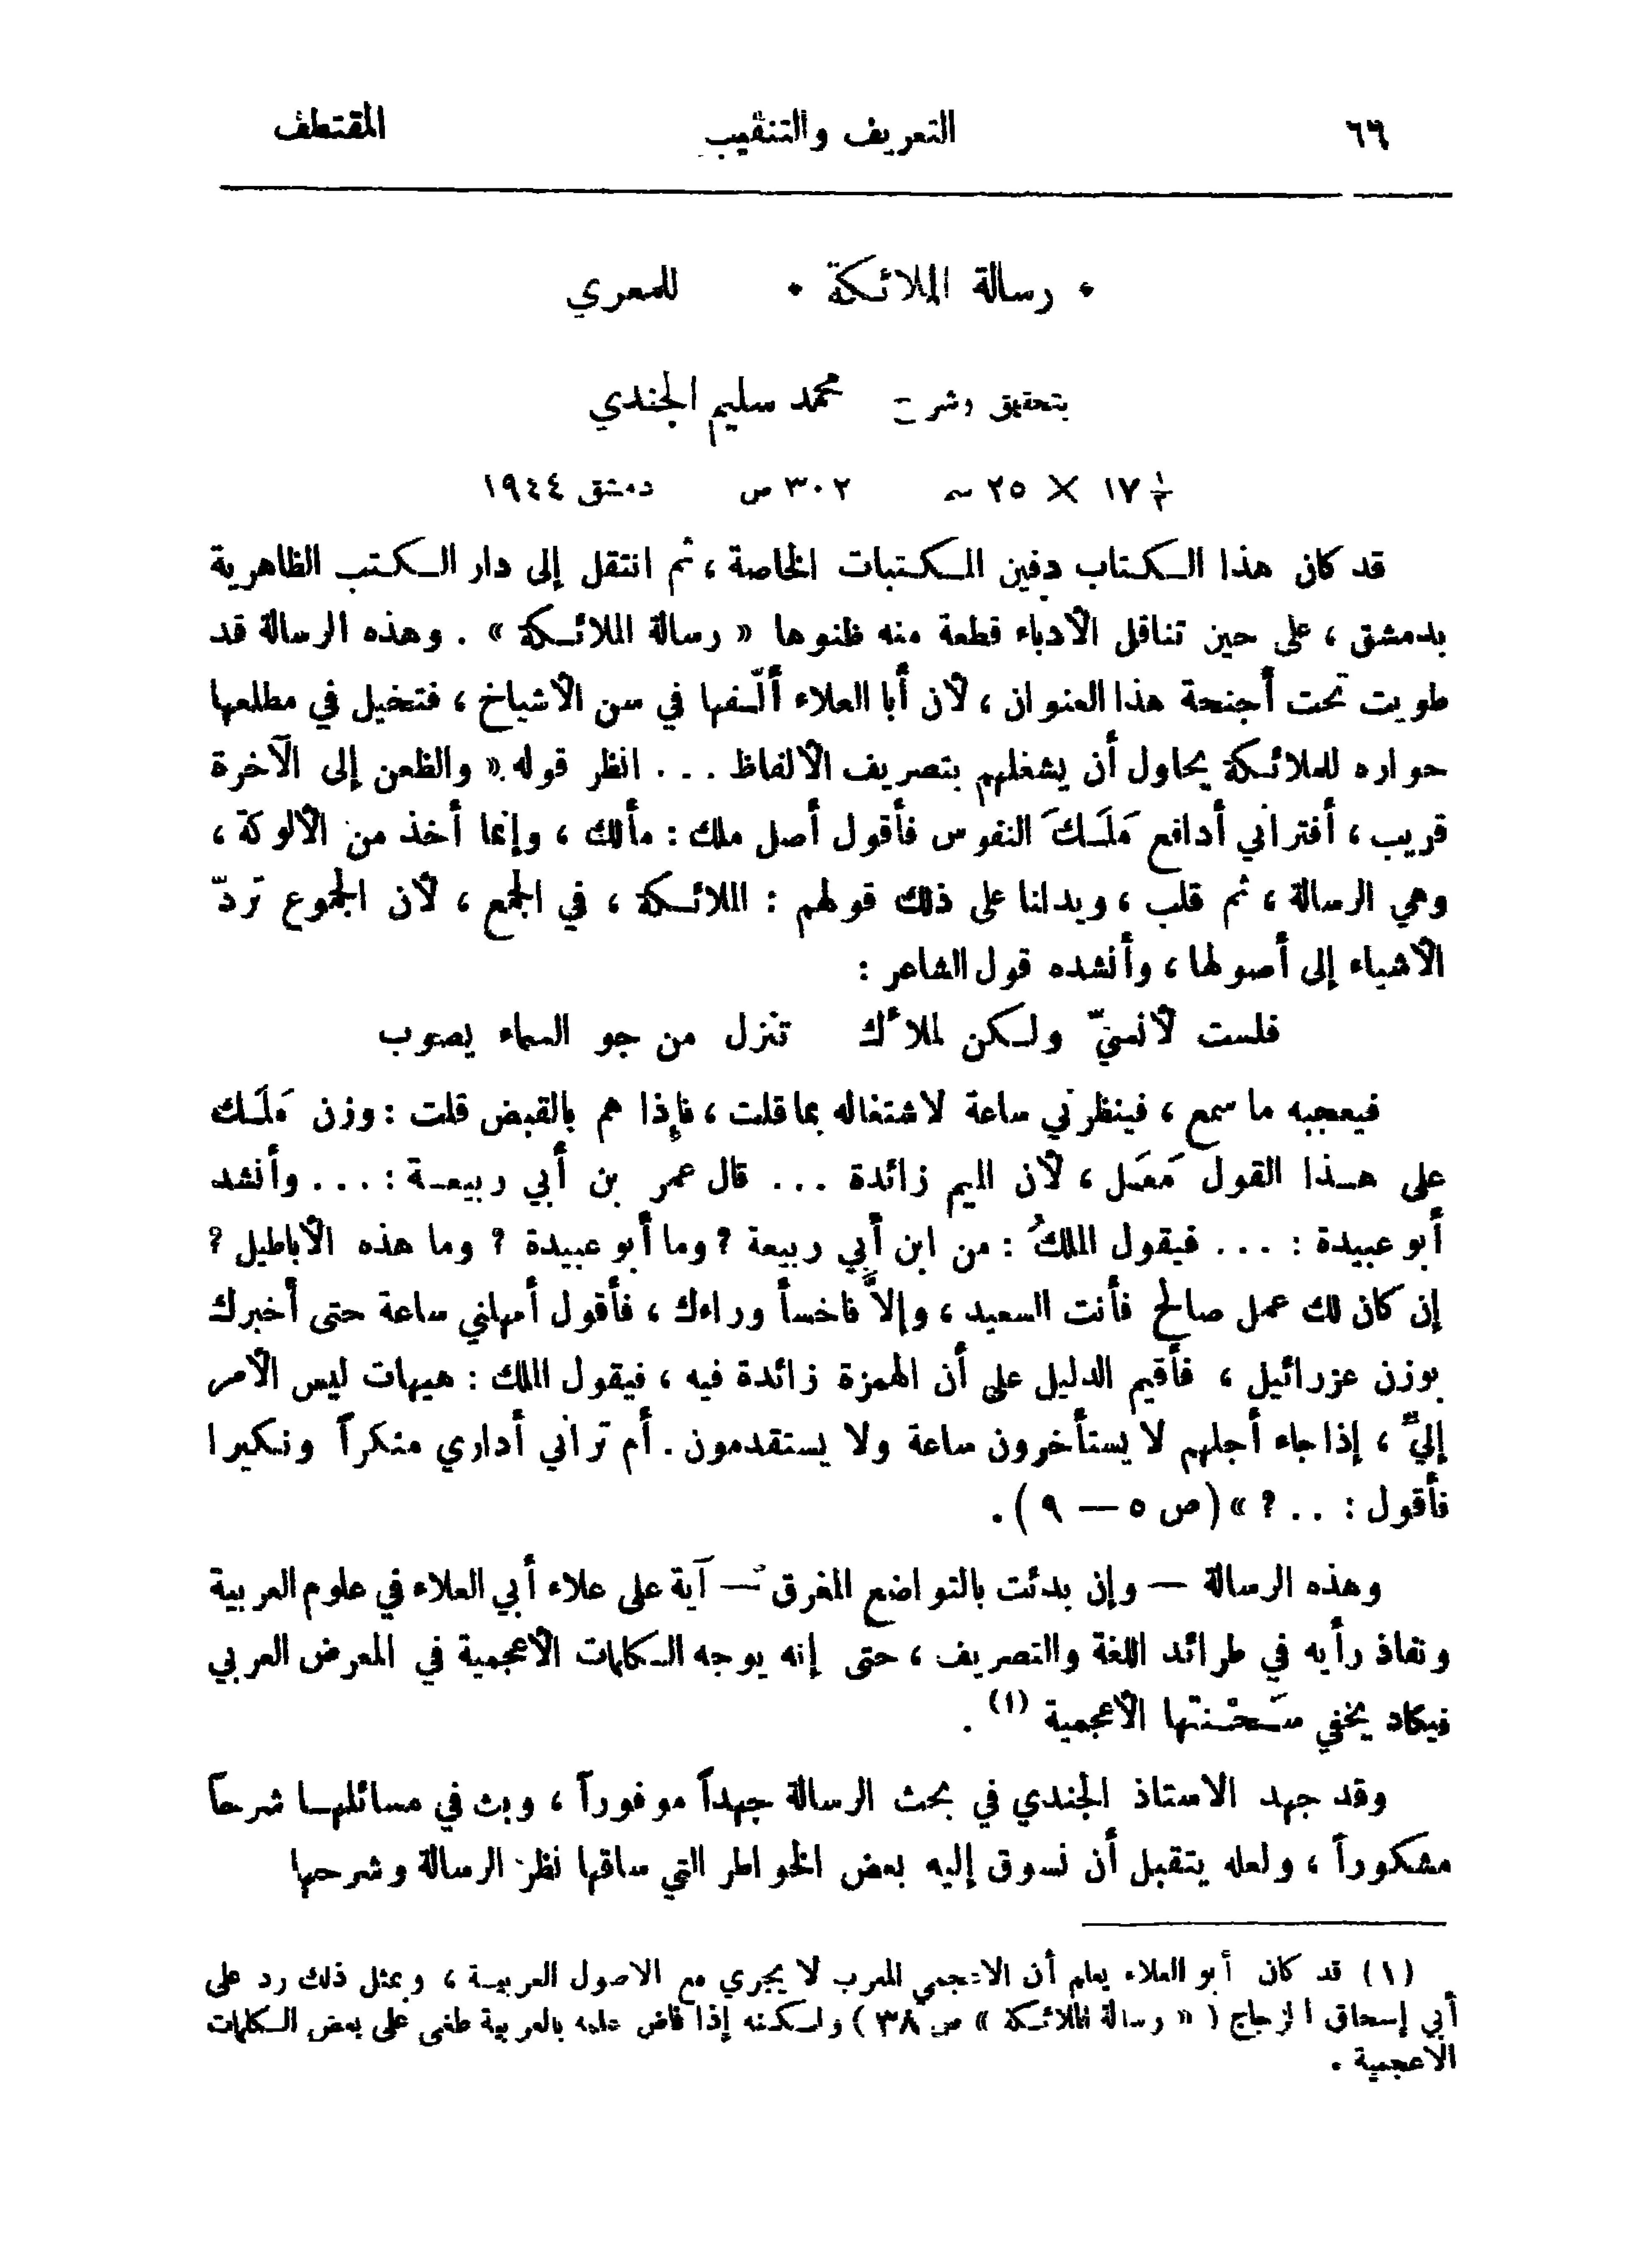 ٦٦ التعريف والتنقيب المقتطف
• رسالة الملائكة • للمعري
بتحقيق وشرح محمد سليم الجندي
١٧½ × ٢٥ سم ٣٠٢ ص دمشق ١٩٤٤
قد كان هذا الكتاب دفين المكتبات الخاصة ، ثم انتقل إلى دار الكتب الظاهرية
بدمشق ، على حين تناقل الأدباء قطعة منه ظنوها « رسالة الملائكة » . وهذه الرسالة قد
طويت تحت أجنحة هذا العنوان ، لأن أبا العلاء ألّفها في سن الأشياخ ، فتخيل في مطلعها
حواره للملائكة يحاول أن يشغلهم بتصريف الألفاظ . . . انظر قوله « والظعن إلى الآخرة
قريب ، أفتراني أدافع مَلَكَ النفوس فأقول أصل ملك : مألك ، وإنما أخذ من الألوكة ،
وهي الرسالة ، ثم قلب ، ويدلنا على ذلك قولهم : الملائكة ، في الجمع ، لأن الجموع تردّ
الأشياء إلى أصولها ، وأنشده قول الشاعر :
فلست لأنسيّ ولكن لملأك تنزل من جو السماء يصوب
فيعجبه ما سمع ، فينظرني ساعة لاشتغاله بما قلت ، فإذا هم بالقبض قلت : وزن مَلَك
على هذا القول مَعَل ، لأن الميم زائدة . . . قال عمر بن أبي ربيعة : . . . وأنشد
أبو عبيدة : . . . فيقول الملكُ : من ابن أبي ربيعة ? وما أبو عبيدة ? وما هذه الأباطيل ?
إن كان لك عمل صالح فأنت السعيد ، وإلاَّ فاخسأ وراءك ، فأقول أمهلني ساعة حتى أخبرك
بوزن عزرائيل ، فأقيم الدليل على أن الهمزة زائدة فيه ، فيقول الملك : هيهات ليس الأمر
إليَّ ، إذا جاء أجلهم لا يستأخرون ساعة ولا يستقدمون . أم تراني أداري منكراً ونكيرا
فأقول : . . ? » (ص ٥ — ٩ ) .
وهذه الرسالة — وإن بدئت بالتواضع المغرق — آية على علاء أبي العلاء في علوم العربية
ونفاذ رأيه في طرائد اللغة والتصريف ، حتى إنه يوجه الكلمات الأعجمية في المعرض العربي
فيكاد يخفي سَحْنتها الأعجمية (١) .
وقد جهد الاستاذ الجندي في بحث الرسالة جهداً موفوراً ، وبث في مسائلها شرحاً
مشكوراً ، ولعله يتقبل أن نسوق إليه بعض الخواطر التي ساقها نظر الرسالة وشرحها
(١) قد كان أبو العلاء يعلم أن الاعجمي المعرب لا يجري مع الاصول العربية ، وبمثل ذلك رد على
أبي إسحاق الزجاج ( « رسالة الملائكة » ص ٣٨ ) ولكنه إذا فاض علمه بالعربية طغى على بعض الكلمات
الاعجمية .